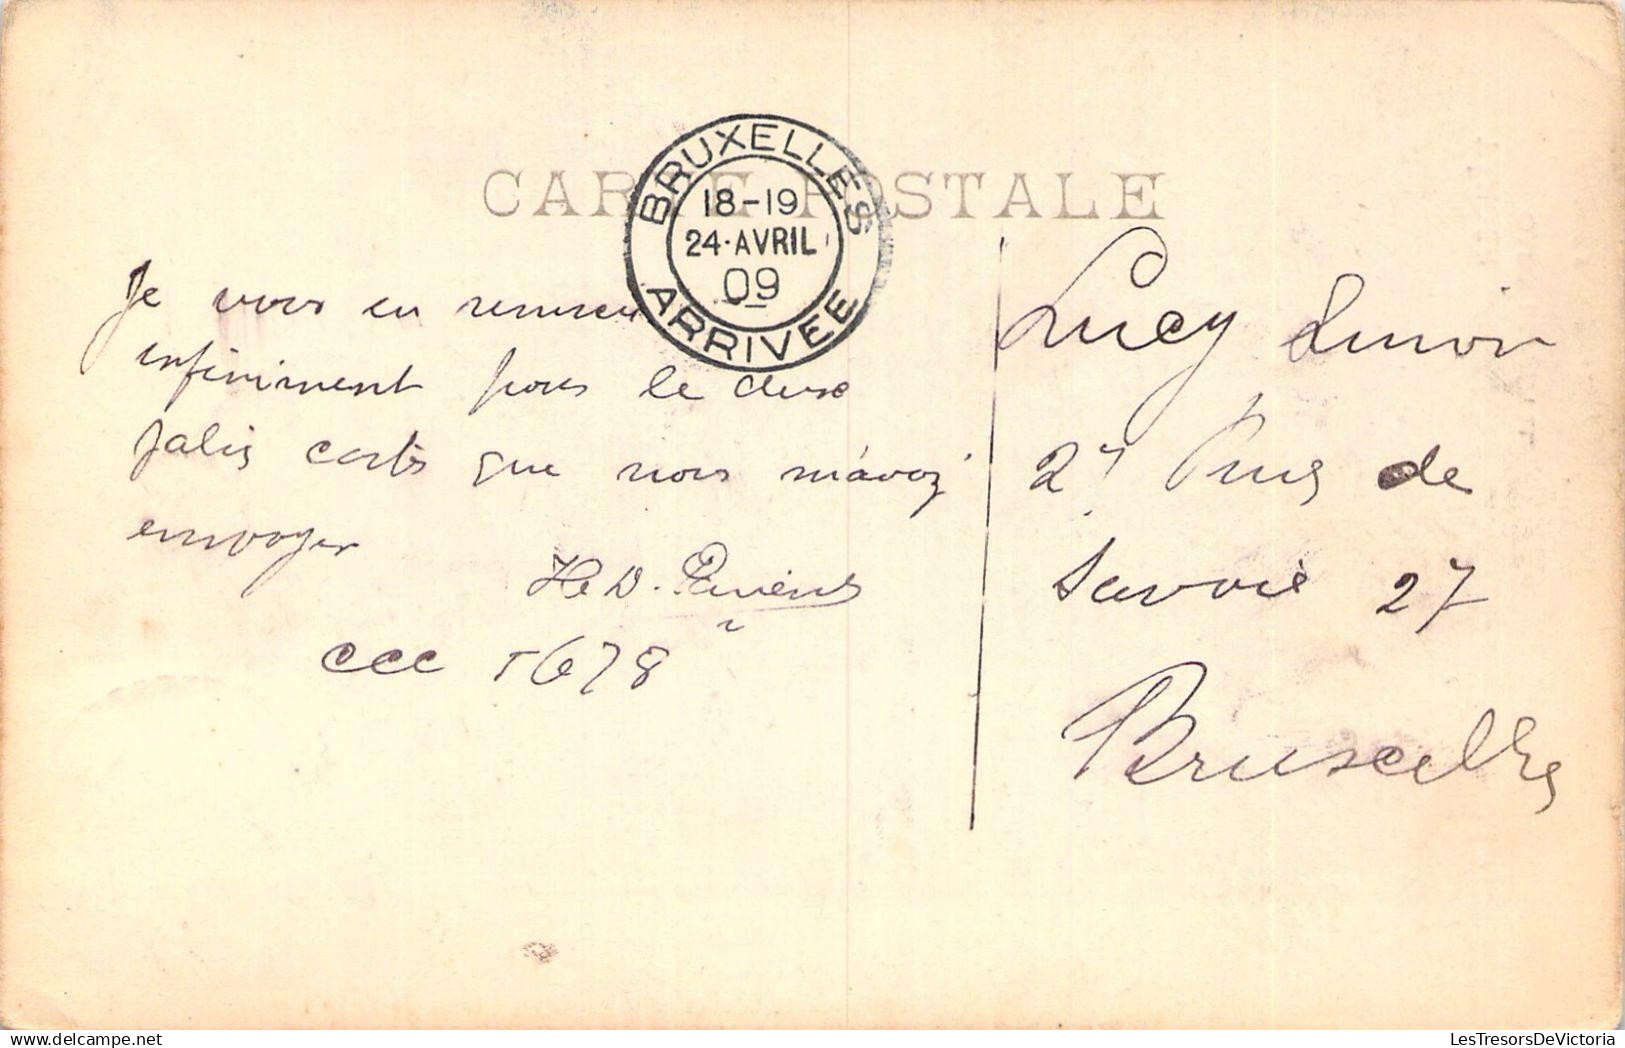 CARTE POSTALE
BRUXELLES
18-19
24·AVRIL
09
ARRIVÉE
Je vous en
infiniment pour le deux
jalis carts que nous m'avoz
envoyer
CCC 5678
Lucy Simon
27 Rue de
Savoie 27
Bruxelles
LesTresorsDeVictoria